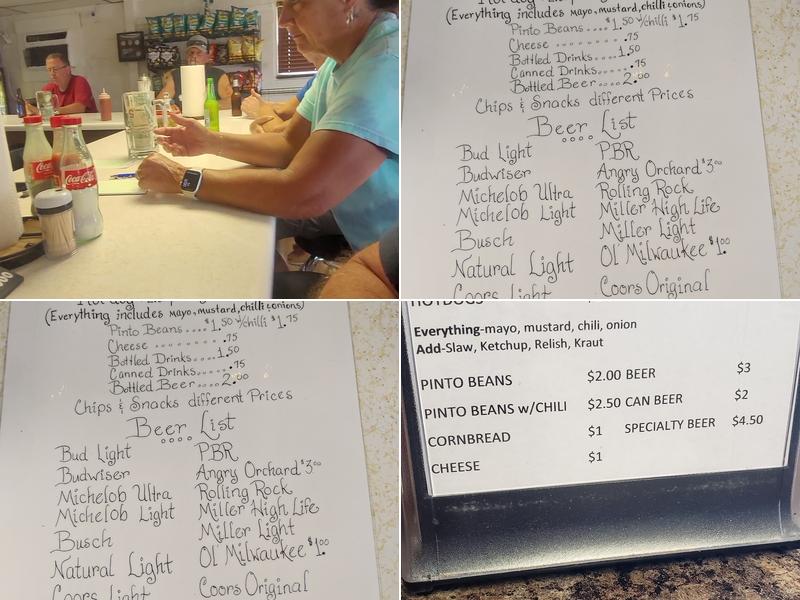 Coca-Cola
Coca-Cola
(Everything includes mayo, mustard, chilli & onions)
Pinto Beans .... $1.50 w/chilli $1.75
Cheese ........ .75
Bottled Drinks.... 1.50
Canned Drinks.... .75
Bottled Beer .... 2.00
Chips & Snacks different Prices
Beer List
Bud Light PBR
Budwiser Angry Orchard $3.00
Michelob Ultra Rolling Rock
Michelob Light Miller High Life
Busch Miller Light
Natural Light Ol' Milwaukee $1.00
Coors Light Coors Original
(Everything includes mayo, mustard, chilli & onions)
Pinto Beans .... $1.50 w/chilli $1.75
Cheese ........ .75
Bottled Drinks.... 1.50
Canned Drinks.... .75
Bottled Beer .... 2.00
Chips & Snacks different Prices
Beer List
Bud Light PBR
Budwiser Angry Orchard $3.00
Michelob Ultra Rolling Rock
Michelob Light Miller High Life
Busch Miller Light
Natural Light Ol' Milwaukee $1.00
Coors Light Coors Original
HOTDOGS
Everything-mayo, mustard, chili, onion
Add-Slaw, Ketchup, Relish, Kraut
PINTO BEANS $2.00 BEER $3
PINTO BEANS w/CHILI $2.50 CAN BEER $2
CORNBREAD $1 SPECIALTY BEER $4.50
CHEESE $1